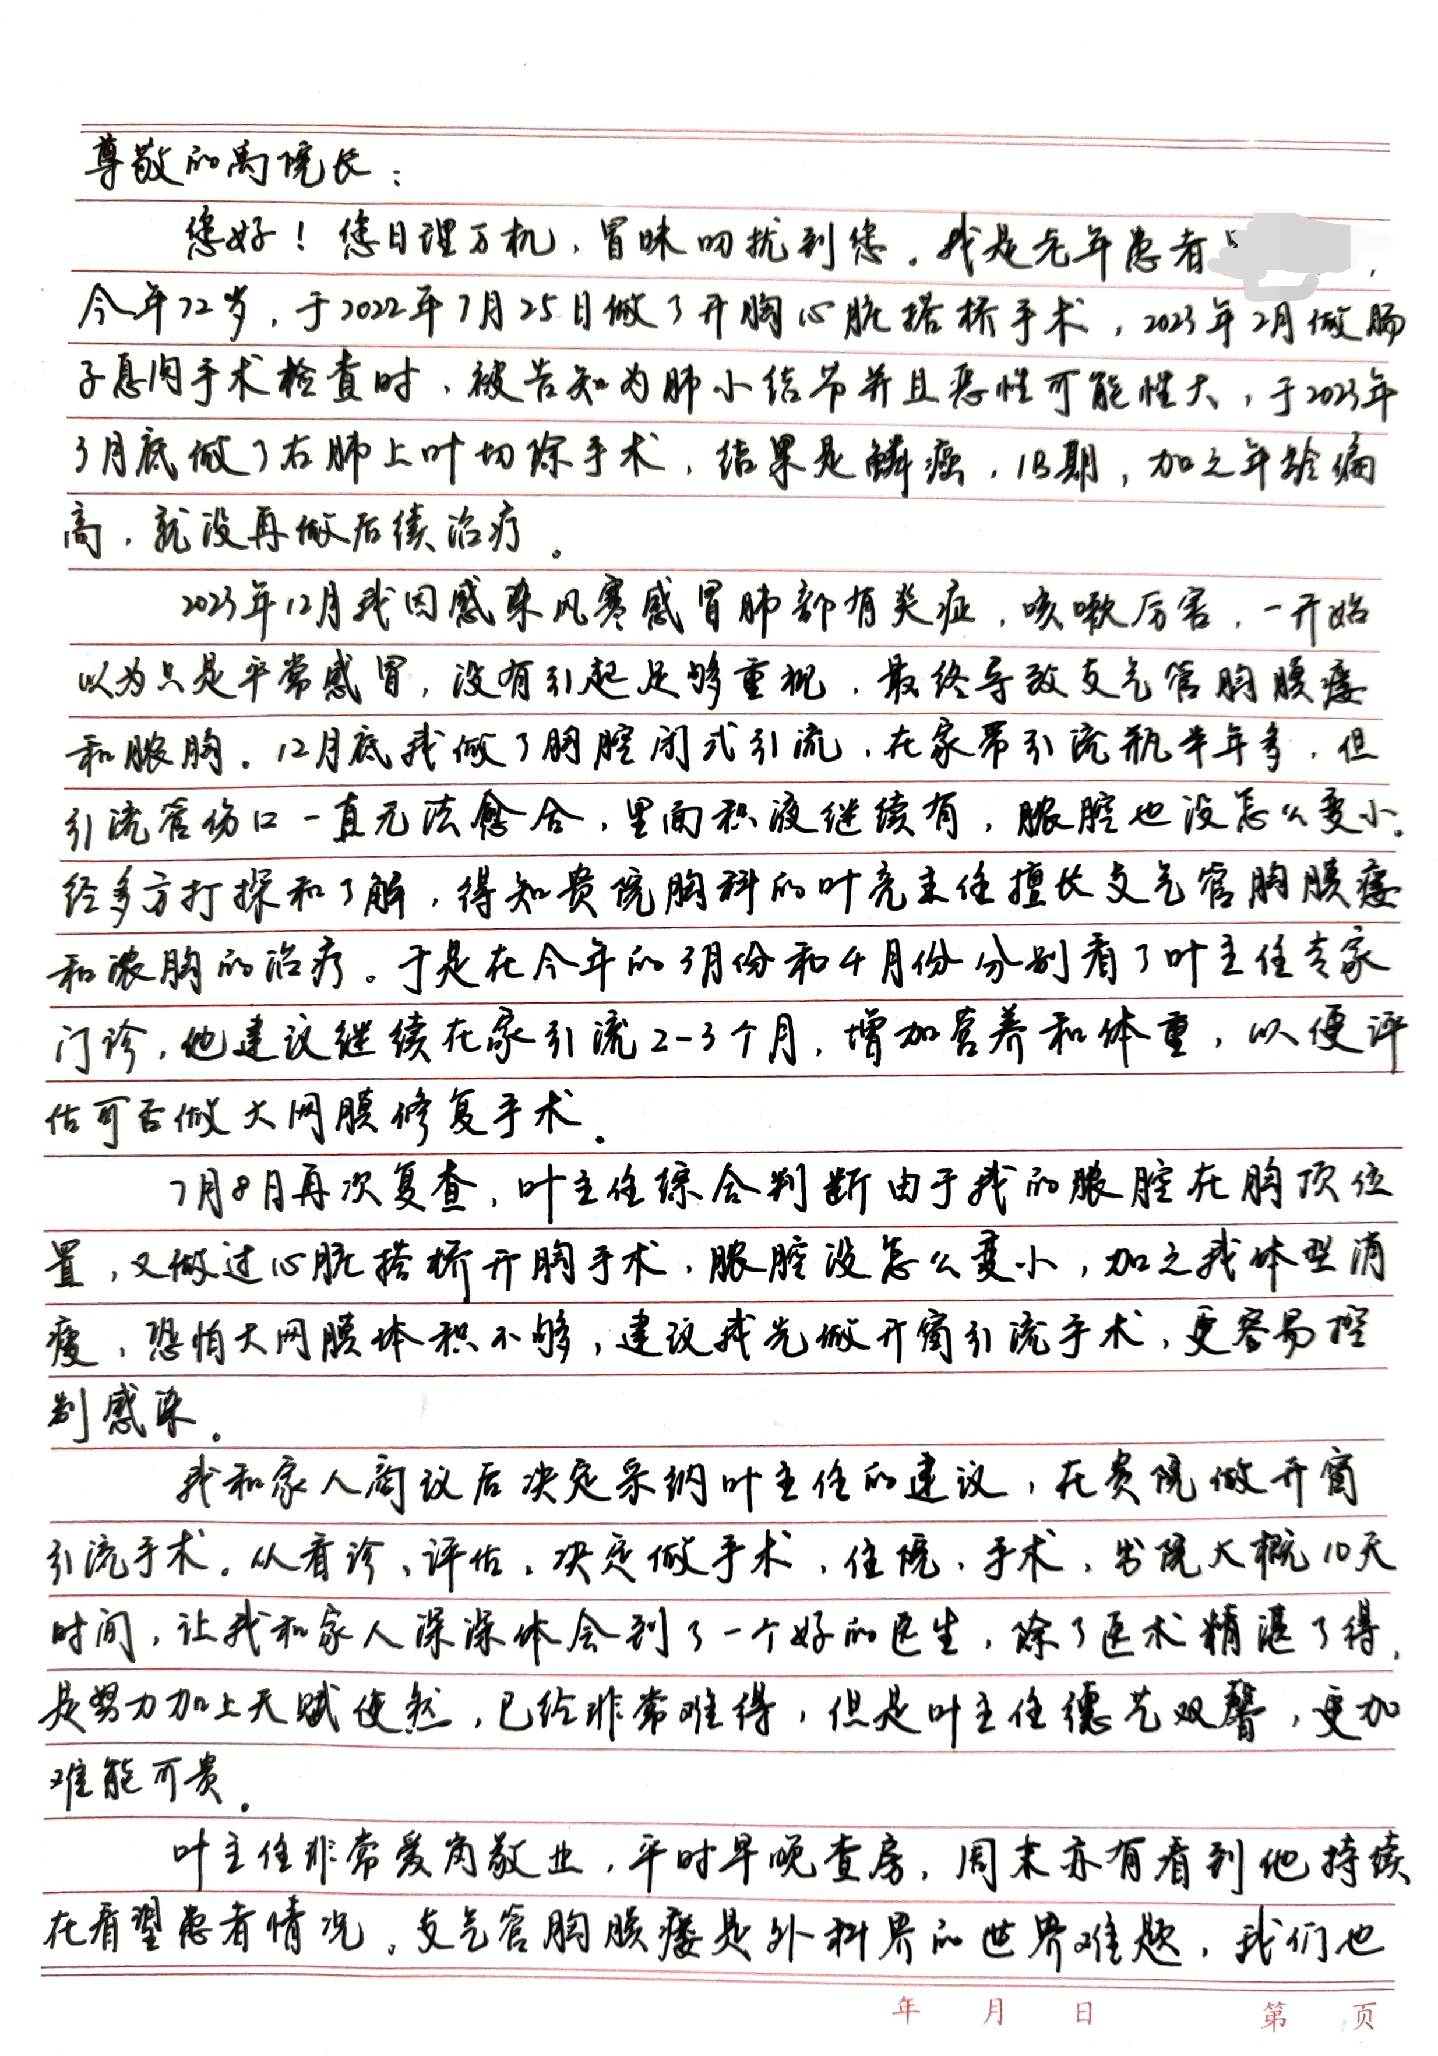 尊敬的禹院长：
您好！您日理万机，冒昧叨扰到您。我是老年患者
今年72岁，于2022年7月25日做了开胸心脏搭桥手术，2023年2月做肠
子息肉手术检查时，被告知为肺小结节并且恶性可能性大，于2023年
3月底做了右肺上叶切除手术，结果是鳞癌，1B期，加之年龄偏
高，就没再做后续治疗。
2023年12月我因感染风寒感冒肺部有炎症，咳嗽厉害，一开始
以为只是平常感冒，没有引起足够重视，最终导致支气管胸膜瘘
和脓胸。12月底我做了胸腔闭式引流，在家带引流瓶半年多，但
引流管伤口一直无法愈合，里面积液继续有，脓腔也没怎么变小。
经多方打探和了解，得知贵院胸科的叶亮主任擅长支气管胸膜瘘
和浓胸的治疗。于是在今年的3月份和4月份分别看了叶主任专家
门诊，他建议继续在家引流2-3个月，增加营养和体重，以便评
估可否做大网膜修复手术。
7月8月再次复查，叶主任综合判断由于我的脓腔在胸顶位
置，又做过心脏搭桥开胸手术，脓腔没怎么变小，加之我体型消
瘦，恐怕大网膜体积不够，建议我先做开窗引流手术，更容易控
制感染。
我和家人商议后决定采纳叶主任的建议，在贵院做开窗
引流手术。从看诊、评估、决定做手术，住院，手术，出院大概10天
时间，让我和家人深深体会到了一个好的医生，除了医术精湛了得，
是努力加上天赋使然，已经非常难得，但是叶主任德艺双馨，更加
难能可贵。
叶主任非常爱岗敬业，平时早晚查房，周末亦有看到他持续
在看望患者情况。支气管胸膜瘘是外科界的世界难题，我们也
年 月 日 第 页